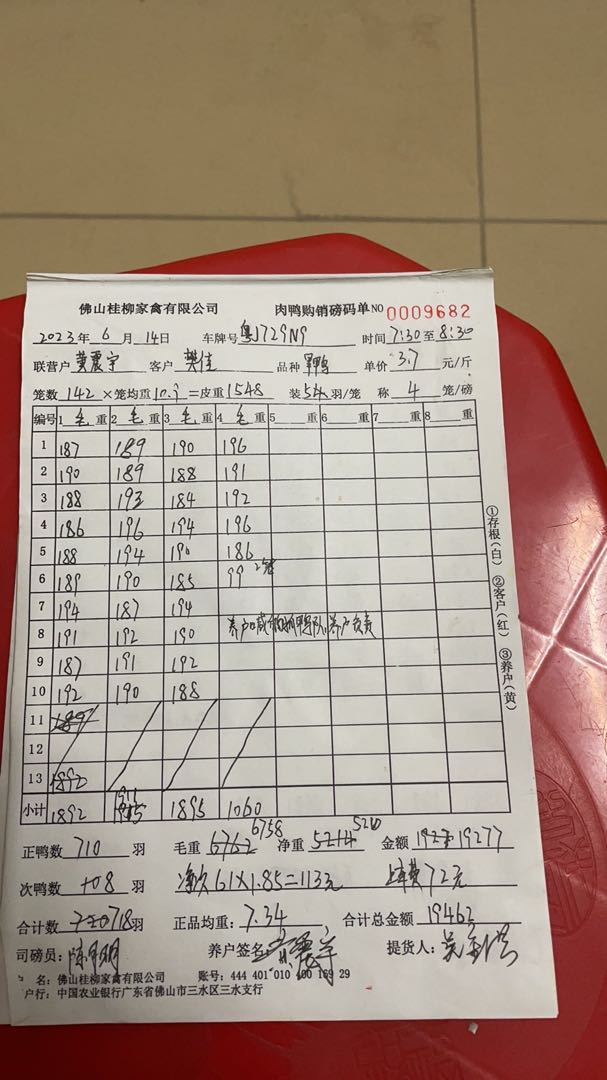 佛山桂柳家禽有限公司 肉鸭购销磅码单 NO 0009682
2023年 6 月 14日 车牌号 粤J729N9 时间 7:30 至 8:30
联营户 黄震宇 客户 樊佳 品种 单价 3.7 元/斤
笼数 142 ×笼均重 10.9 =皮重 1548 装 5 羽/笼 称 4 笼/磅
编号 1 毛 重 2 毛 重 3 毛 重 4 毛 重 5 重 6 重 7 重 8 重
1 187 189 190 196
2 190 189 188 191
3 188 193 184 192
4 186 196 194 196
5 188 194 190 186
6 189 190 185 99 2笼
7 194 187 194
8 191 192 190 养户负责
9 187 191 192
10 192 190 188
11 189
12
13 1892
小计 1892 1911 1895 1060
正鸭数 710 羽 毛重 6762 6758 净重 5214 5210 金额 19277
次鸭数 +08 羽 净次61×1.85=113元 72元
合计数 718羽 正品均重: 7.34 合计总金额 19462
司磅员: 养户签名 提货人:
名: 佛山桂柳家禽有限公司 账号: 444 401 010 400 169 29
户行: 中国农业银行广东省佛山市三水区三水支行
①存根(白) ②客户(红) ③养户(黄)